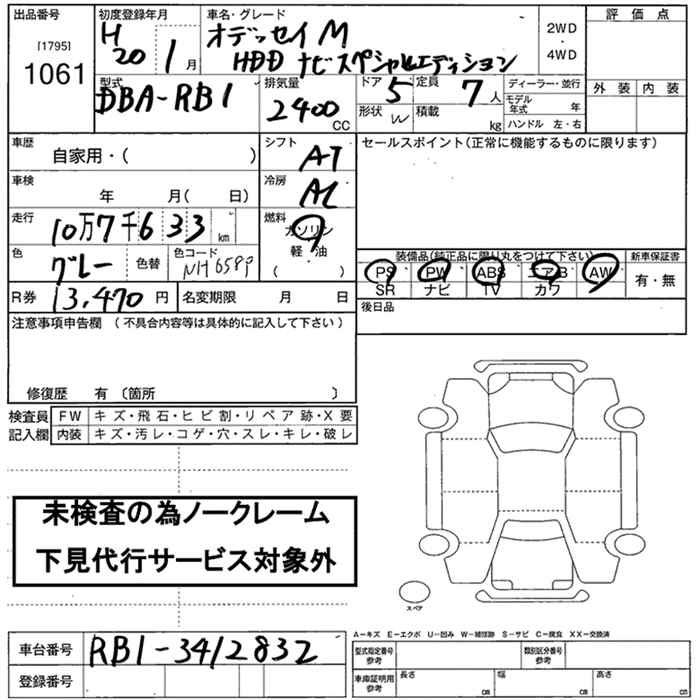 出品番号 初度登録年月 車名・グレード 評価点
[1795] H オデッセイ M 2WD
1061 20 1月 HDD ナビスペシャルエディション ・4WD
型式 排気量 ドア 定員 ディーラー・並行 外装 内装
DBA-RB1 2400 CC 5 7人 モデル年式 年
形状 W 積載 kg ハンドル 左・右
車歴 シフト セールスポイント(正常に機能するものに限ります)
自家用・( ) AT
車検 冷房
年 月( 日) AC
走行 燃料
10万7千633km ガソリン
色 色替 色コード 軽・油 装備品(純正品に限り丸をつけて下さい) 新車保証書
グレー NH658P ( ) PS PW ABS エアB AW 有・無
R券 13,470円 名変期限 月 日 SR ナビ TV カワ
注意事項申告欄 (不具合内容等は具体的に記入して下さい) 後日品
修復歴 有 (箇所 )
検査員 FW キズ・飛石・ヒビ割・リペア跡・X要
記入欄 内装 キズ・汚レ・コゲ・穴・スレ・キレ・破レ
未検査の為ノークレーム
下見代行サービス対象外
スペア
A-キズ E-エクボ U-凹み W-補修跡 S-サビ C-腐食 XX-交換済
車台番号 RB1-3412832 型式指定番号 参考 類別区分番号 参考
登録番号 車庫証明用 参考 長さ cm 幅 cm 高さ cm